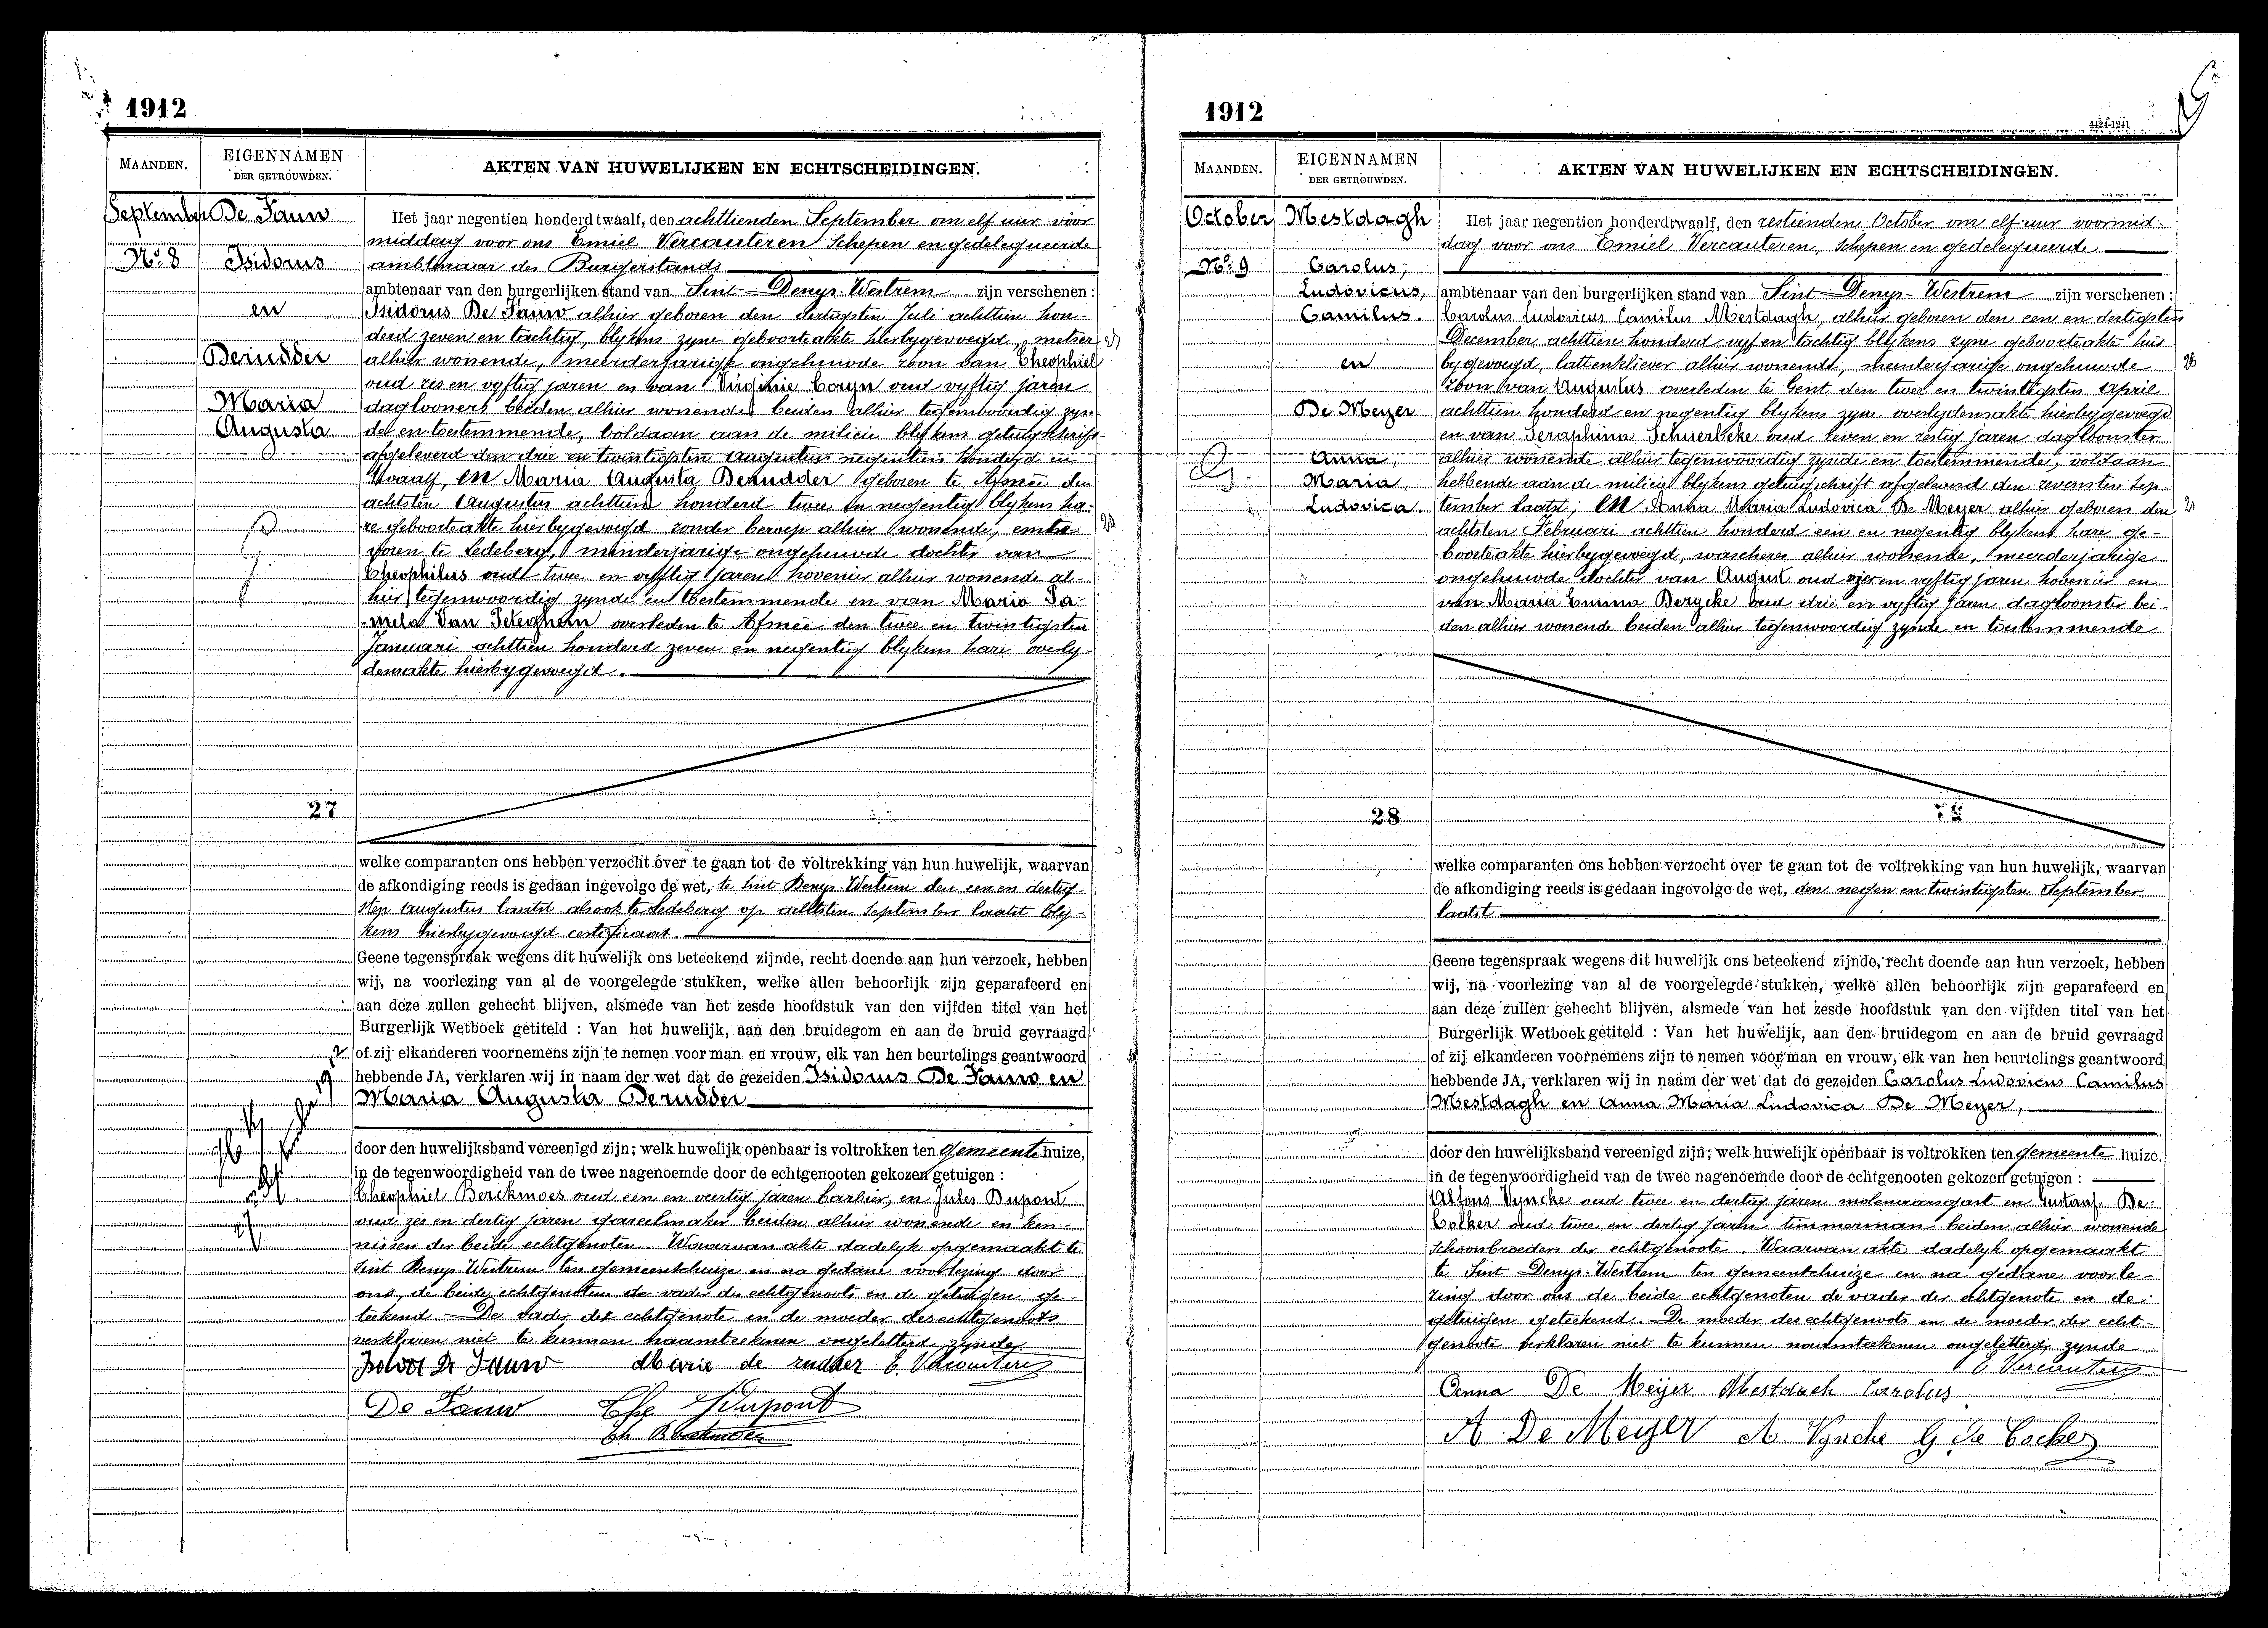 1912
MAANDEN.
EIGENNAMEN
DER GETROUWDEN.
AKTEN VAN HUWELIJKEN EN ECHTSCHEIDINGEN.
September
No. 8
De Fauw
Isidorus
en
Derudder
Maria
Augusta
27
Het jaar negentien honderd twaalf, den achttienden September om elf uur voor
middag voor ons Emiel Vercauteren Schepen en gedelegueerde
ambtenaar des Burgerstands
ambtenaar van den burgerlijken stand van Sint-Denys-Westrem zijn verschenen :
Isidorus De Fauw alhier geboren den dertigsten Juli achttien hon-
derd zeven en tachtig, blykens zyne geboorteakte hierbygevoegd, metser
alhier wonende, meerderjarige ongehuwde zoon van Theophiel
oud zes en vyftig jaren en van Virginie Coryn oud vyftig jaren
daglooners beiden alhier wonende beiden alhier tegenwoordig zyn-
de en toestemmende, voldaan aan de milicie blykens getuigschrift
afgeleverd den drie en twintigsten Augustus negentien honderd en
twaalf, en Maria Augusta Derudder geboren te Afsnee den
achtsten Augustus achttien honderd twee en negentig blykens ha-
re geboorteakte hierbygevoegd zonder beroep alhier wonende,
voren te Ledeberg, minderjarige ongehuwde dochter van
Theophilus oud twee en vyftig jaren hovenier alhier wonende al-
hier tegenwoordig zynde en toestemmende en van Maria Pa-
mela Van Peteghem overleden te Afsnee den twee en twintigsten
Januari achttien honderd zeven en negentig blykens hare overly-
densakte hierbygevoegd.
welke comparanten ons hebben verzocht over te gaan tot de voltrekking van hun huwelijk, waarvan
de afkondiging reeds is gedaan ingevolge de wet, te Sint Denys-Westrem den een en dertig-
sten Augustus laatst alsook te Ledeberg op achtsten September laatst bly-
kens hierbygevoegd certificaat.
Geene tegenspraak wegens dit huwelijk ons beteekend zijnde, recht doende aan hun verzoek, hebben
wij, na voorlezing van al de voorgelegde stukken, welke allen behoorlijk zijn geparafeerd en
aan deze zullen gehecht blijven, alsmede van het zesde hoofdstuk van den vijfden titel van het
Burgerlijk Wetboek getiteld : Van het huwelijk, aan den bruidegom en aan de bruid gevraagd
of zij elkanderen voornemens zijn te nemen voor man en vrouw, elk van hen beurtelings geantwoord
hebbende JA, verklaren wij in naam der wet dat de gezeiden Isidorus De Fauw en
Maria Augusta Derudder
door den huwelijksband vereenigd zijn; welk huwelijk openbaar is voltrokken ten gemeente huize,
in de tegenwoordigheid van de twee nagenoemde door de echtgenooten gekozen getuigen :
Theophiel Berckmoes oud een en veertig jaren barbier, en Jules Dupont
oud zes en dertig jaren gareelmaker beiden alhier wonende en ken-
nissen der beide echtgenoten. Waarvan akte dadelyk opgemaakt te
Sint Denys-Westrem ten gemeentehuize en na gedane voorlezing door
ons, de beide echtgenoten de vader des echtgenoots en de getuigen ge-
teekend. De vader der echtgenote en de moeder des echtgenoots
verklaren niet te kunnen naamteekenen ongeletterd zynde.
Isidoor De Fauw Marie de rudder E. Vercauteren
De Fauw J Dupont
Th Berckmoes
1912
4424-1241
MAANDEN.
EIGENNAMEN
DER GETROUWDEN.
AKTEN VAN HUWELIJKEN EN ECHTSCHEIDINGEN.
October
No. 9
Mestdagh
Carolus,
Ludovicus,
Camilus.
en
De Meyer
Anna,
Maria,
Ludovica.
28
Het jaar negentien honderd twaalf, den zestienden October om elf uur voormid-
dag voor ons Emiel Vercauteren, schepen en gedelegueerde
ambtenaar van den burgerlijken stand van Sint-Denys-Westrem zijn verschenen :
Carolus Ludovicus Camilus Mestdagh, alhier geboren den een en dertigsten
December achttien honderd vyf en tachtig blykens zyne geboorteakte hier
bygevoegd, lattenkliever alhier wonende, meerderjarige ongehuwde
zoon van Augustus overleden te Gent den twee en twintigsten April
achttien honderd en negentig blykens zyne overlydensakte hierbygevoegd
en van Seraphina Schuerbeke oud zeven en zestig jaren dagloonster
alhier wonende alhier tegenwoordig zynde en toestemmende, voldaan
hebbende aan de milicie blykens getuigschrift afgeleverd den zevensten Sep-
tember laatst; en Anna Maria Ludovica De Meyer alhier geboren den
achtsten Februari achttien honderd een en negentig blykens hare ge-
boorteakte hierbygevoegd, wascheres alhier wonende, meerderjarige
ongehuwde dochter van August oud vyf en vyftig jaren hovenier en
van Maria Emma Derycke oud drie en vyftig jaren dagloonster bei-
den alhier wonende beiden alhier tegenwoordig zynde en toestemmende
welke comparanten ons hebben verzocht over te gaan tot de voltrekking van hun huwelijk, waarvan
de afkondiging reeds is gedaan ingevolge de wet, den negen en twintigsten September
laatst
Geene tegenspraak wegens dit huwelijk ons beteekend zijnde, recht doende aan hun verzoek, hebben
wij, na voorlezing van al de voorgelegde stukken, welke allen behoorlijk zijn geparafeerd en
aan deze zullen gehecht blijven, alsmede van het zesde hoofdstuk van den vijfden titel van het
Burgerlijk Wetboek getiteld : Van het huwelijk, aan den bruidegom en aan de bruid gevraagd
of zij elkanderen voornemens zijn te nemen voor man en vrouw, elk van hen beurtelings geantwoord
hebbende JA, verklaren wij in naam der wet dat de gezeiden Carolus Ludovicus Camilus
Mestdagh en Anna Maria Ludovica De Meyer,
door den huwelijksband vereenigd zijn; welk huwelijk openbaar is voltrokken ten gemeente huize.
in de tegenwoordigheid van de twee nagenoemde door de echtgenooten gekozen getuigen :
Alfons Vyncke oud twee en dertig jaren molenaarsgast en Gustaaf De
Cocker oud twee en dertig jaren timmerman beiden alhier wonende
schoonbroeders der echtgenoote. Waarvan akte dadelyk opgemaakt
te Sint-Denys-Westrem ten gemeentehuize en na gedane voorle-
zing door ons de beide echtgenoten de vader der echtgenote en de
getuigen geteekend. De moeder des echtgenoots en de moeder der echt-
genoote verklaren niet te kunnen naamteekenen ongeletterd zynde.
E. Vercauteren
Anna De Meijer Mestdach Carolus
A De Meyer A Vyncke G De Cocker